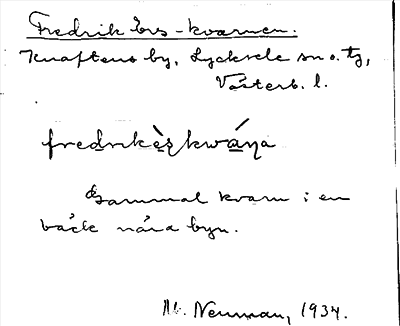 Fredrik Ers-kvarnen.
Knaftens by, Lycksele sn o. tg,
Västerb. l.
fredrikèṣkwáṇa
Gammal kvarn i en
bäck nära byn.
M. Neuman, 1934.